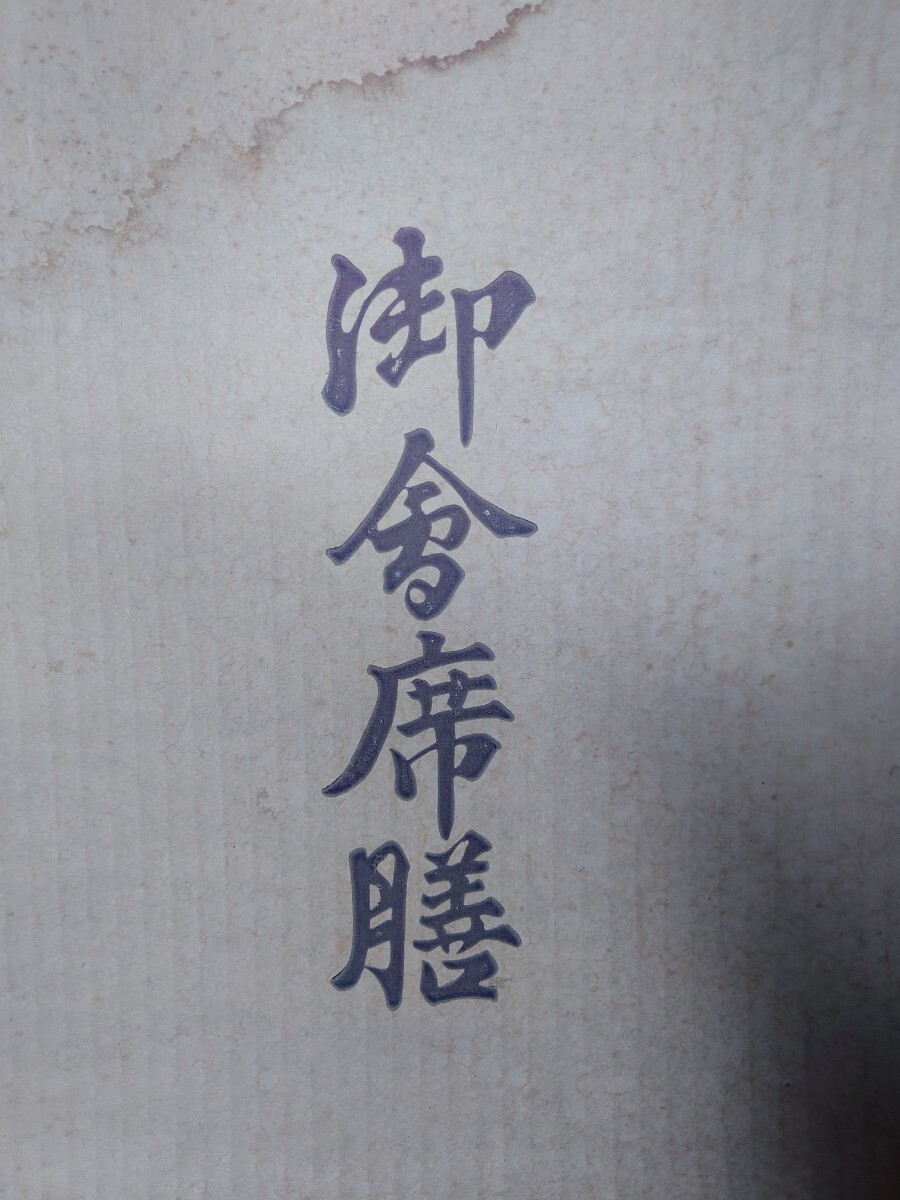 御會席膳